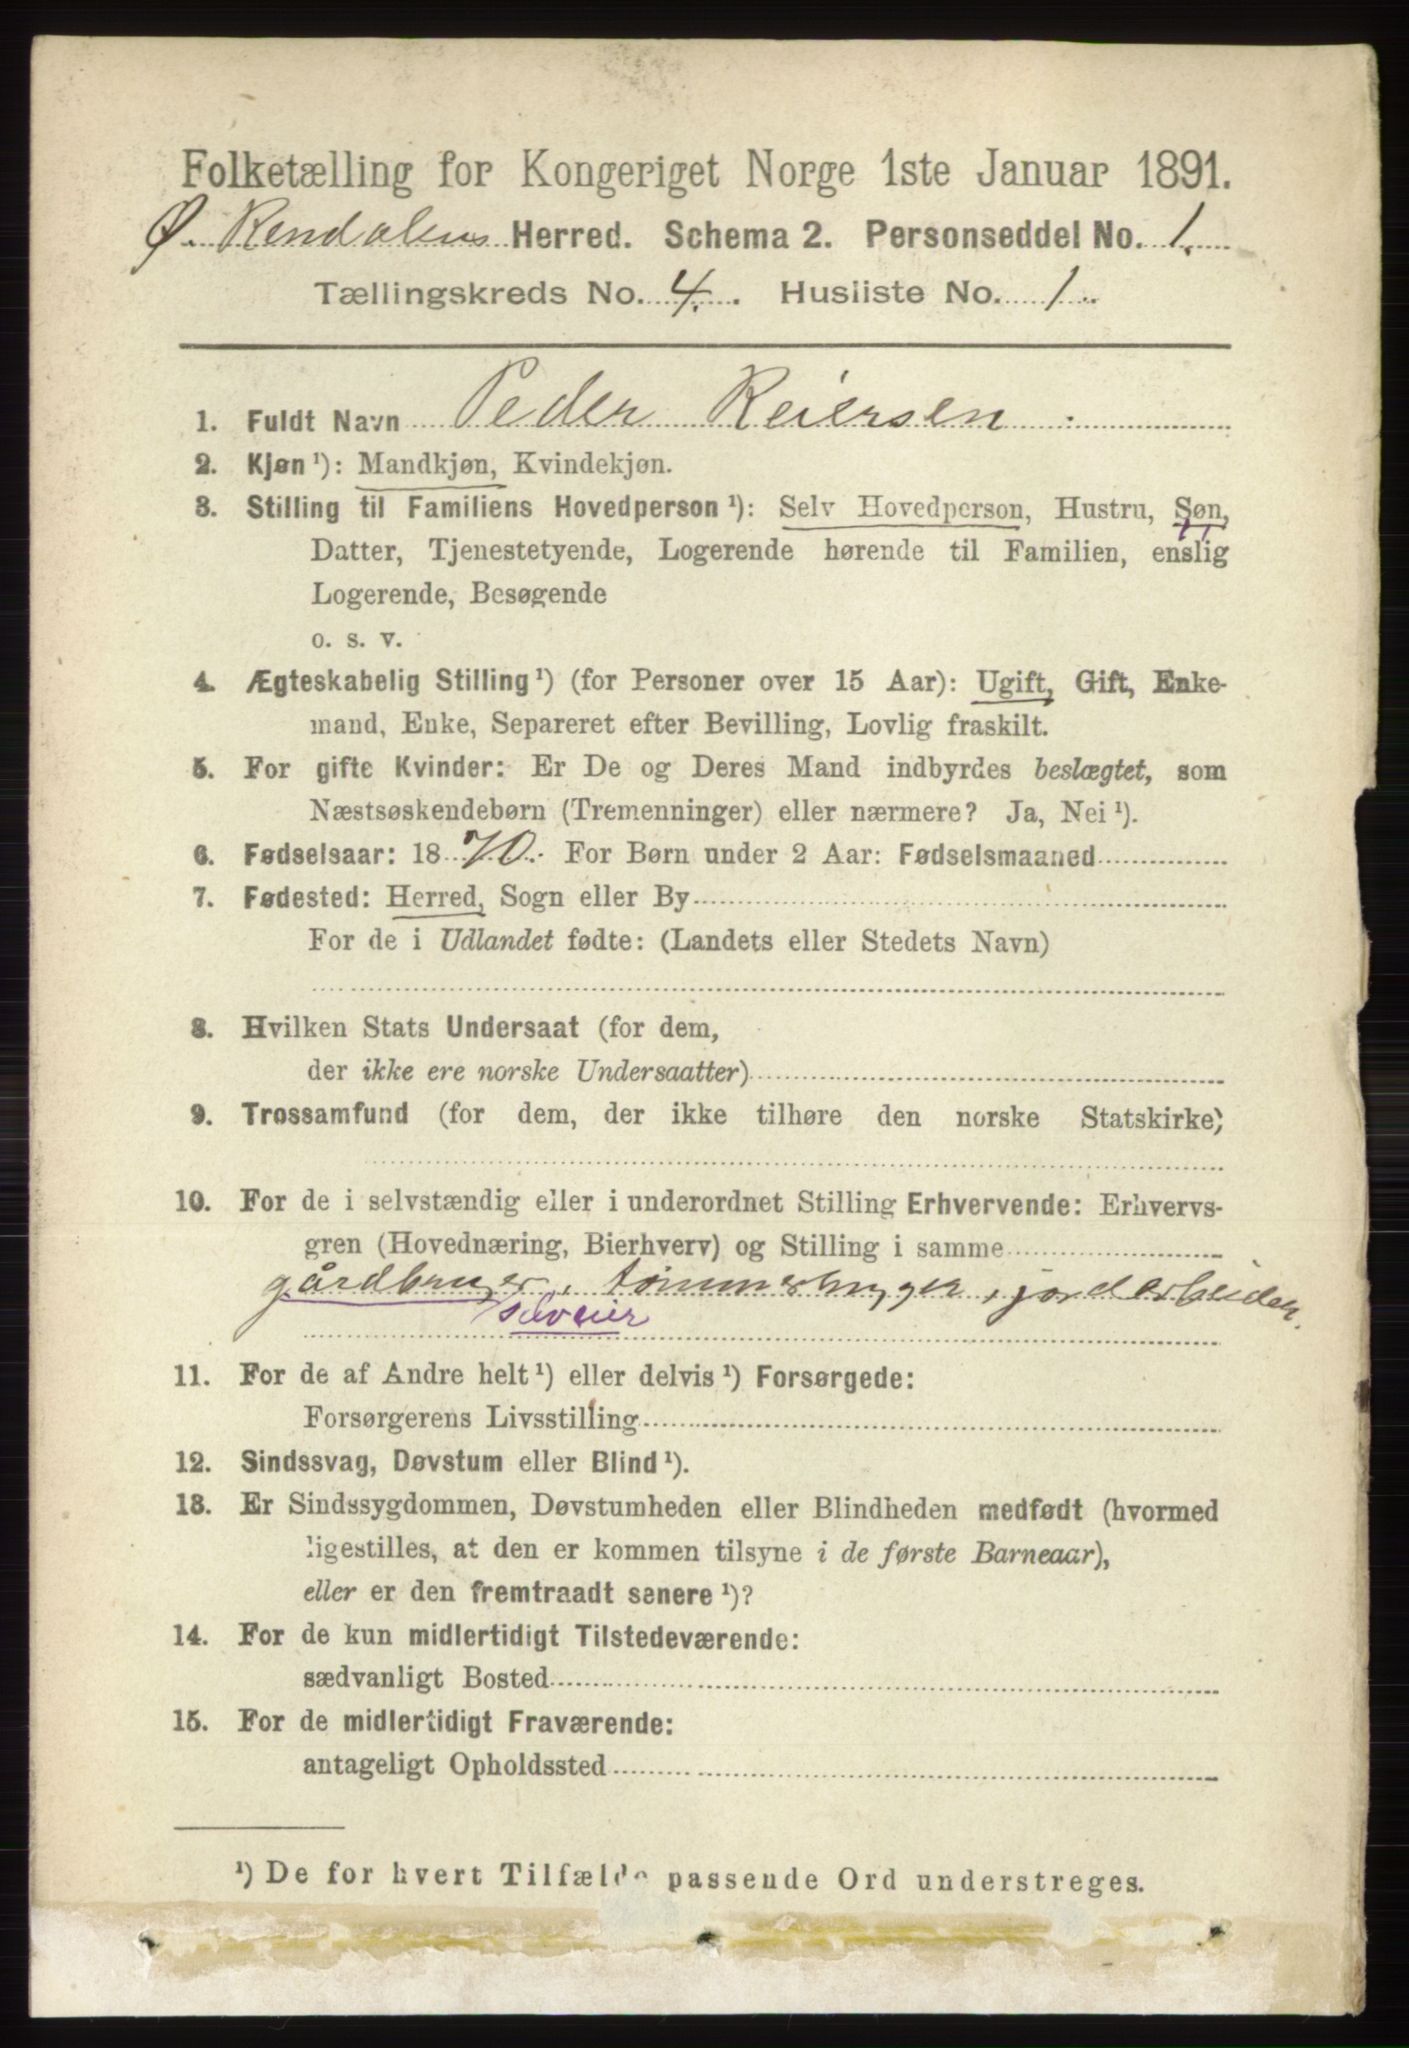 Folketælling for Kongeriget Norge 1ste Januar 1891.
Ø. Rendalens Herred. Schema 2. Personseddel No. 1.
Tællingskreds No. 4. Husliste No. 1.
1. Fuldt Navn Peder Reiersen
2. Kjøn ¹): Mandkjøn, Kvindekjøn.
3. Stilling til Familiens Hovedperson ¹): Selv Hovedperson, Hustru, Søn,
Datter, Tjenestetyende, Logerende hørende til Familien, enslig
Logerende, Besøgende
o. s. v.
4. Ægteskabelig Stilling ¹) (for Personer over 15 Aar): Ugift, Gift, Enke-
mand, Enke, Separeret efter Bevilling, Lovlig fraskilt.
5. For gifte Kvinder: Er De og Deres Mand indbyrdes beslægtet, som
Næstsøskendebørn (Tremenninger) eller nærmere? Ja, Nei ¹).
6. Fødselsaar: 1870. For Børn under 2 Aar: Fødselsmaaned
7. Fødested: Herred, Sogn eller By
For de i Udlandet fødte: (Landets eller Stedets Navn)
8. Hvilken Stats Undersaat (for dem,
der ikke ere norske Undersaatter)
9. Trossamfund (for dem, der ikke tilhøre den norske Statskirke)
10. For de i selvstændig eller i underordnet Stilling Erhvervende: Erhvervs-
gren (Hovednæring, Bierhverv) og Stilling i samme
gårdbruger, tømmerhugger, jordarbeider.
selveier
11. For de af Andre helt ¹) eller delvis ¹) Forsørgede:
Forsørgerens Livsstilling
12. Sindssvag, Døvstum eller Blind ¹).
13. Er Sindssygdommen, Døvstumheden eller Blindheden medfødt (hvormed
ligestilles, at den er kommen tilsyne i de første Barneaar),
eller er den fremtraadt senere ¹)?
14. For de kun midlertidigt Tilstedeværende:
sædvanligt Bosted
15. For de midlertidigt Fraværende:
antageligt Opholdssted
¹) De for hvert Tilfælde passende Ord understreges.